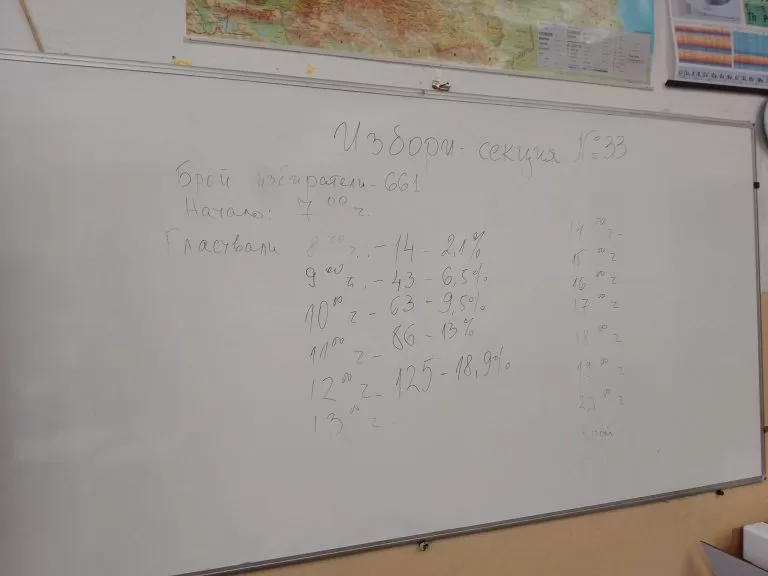 Избори - секция №33
Брой избиратели - 661
Начало: 7 00 ч.
Гласували 8 00 ч. - 14 - 2,1%
9 00 ч. - 43 - 6,5%
10 00 ч - 63 - 9,5%
11 00 ч - 86 - 13%
12 00 ч - 125 - 18,9%
13 00 ч
14 00 ч
15 00 ч
16 00 ч
17 00 ч
18 00 ч
19 00 ч
00 ч